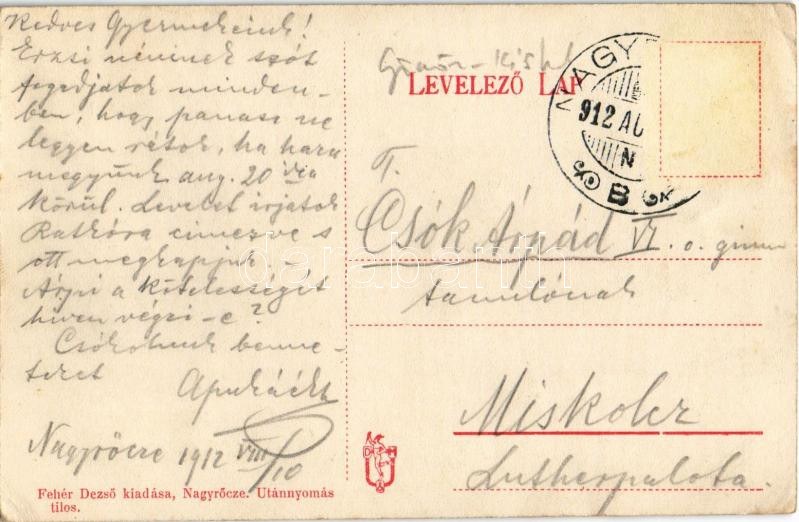 Kedves Gyermekeink!
Erzsi néninek szót
fogadjatok minden-
ben, hogy panasz ne
legyen rátok, ha haza
megyünk aug. 20 ika
körül. Levelet irjatok
Ratkóra cimezve s
ott megkapjuk. -
Árpi a kötelességét
hiven végzi-e?
Csókolunk benne-
teket
Nagyrőcze 1912 VIII/10
Fehér Dezső kiadása, Nagyrőcze. Utánnyomás
tilos.
LEVELEZŐ LAP
NAGY
912 AU
N
B
T.
Csók Árpád VI. o. gimn
tanulónak
Miskolcz
Lutherpalota.
D H
darabanth